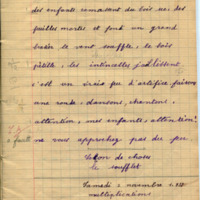 des enfants ramassent du bois sec, des
feuilles mortes et font un grand
brasier le vent souffle, le bois
pétille, les étincelles jaillissent
c'est un vrais feu d'artifice faisons
une ronde, dansons, chantons,
attention, mes enfants, attention!
ne vous approchez pas du feu
Leçon de choses
le soufflet
Samedi 2 novembre 1935
multiplications